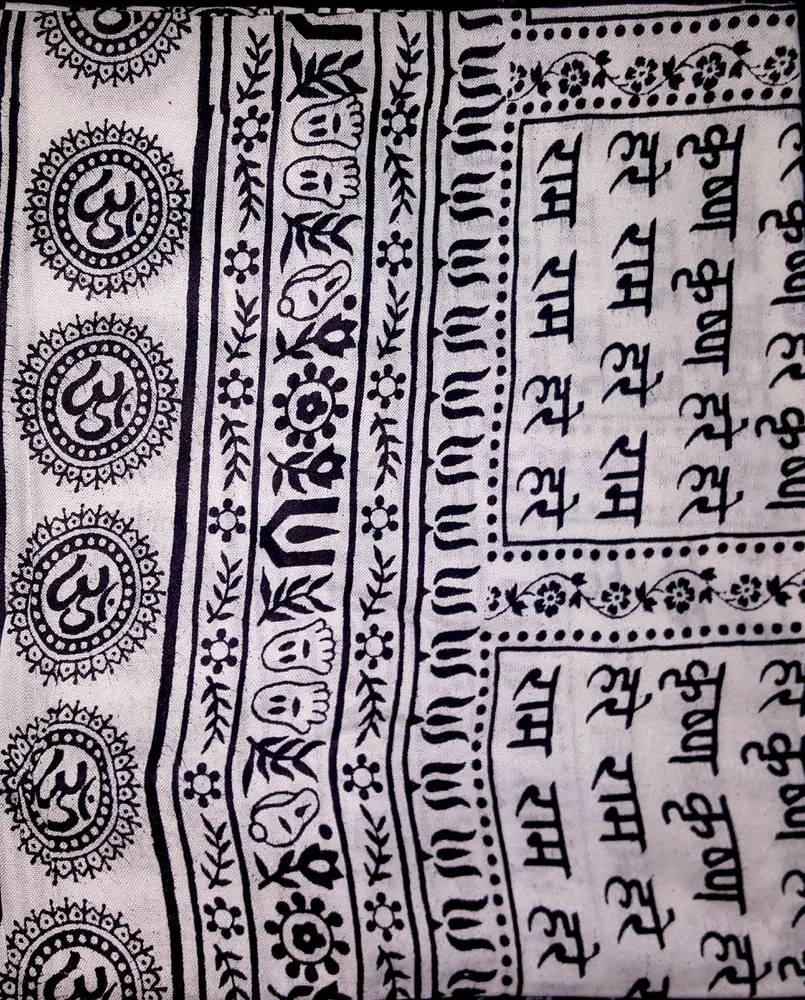 हरे कृष्ण हरे कृष्ण
कृष्ण कृष्ण हरे हरे
हरे राम हरे राम
राम राम हरे हरे
हरे कृष्ण हरे
कृष्ण कृष्ण हरे
हरे राम हरे
राम राम हरे
ॐ ॐ ॐ ॐ ॐ